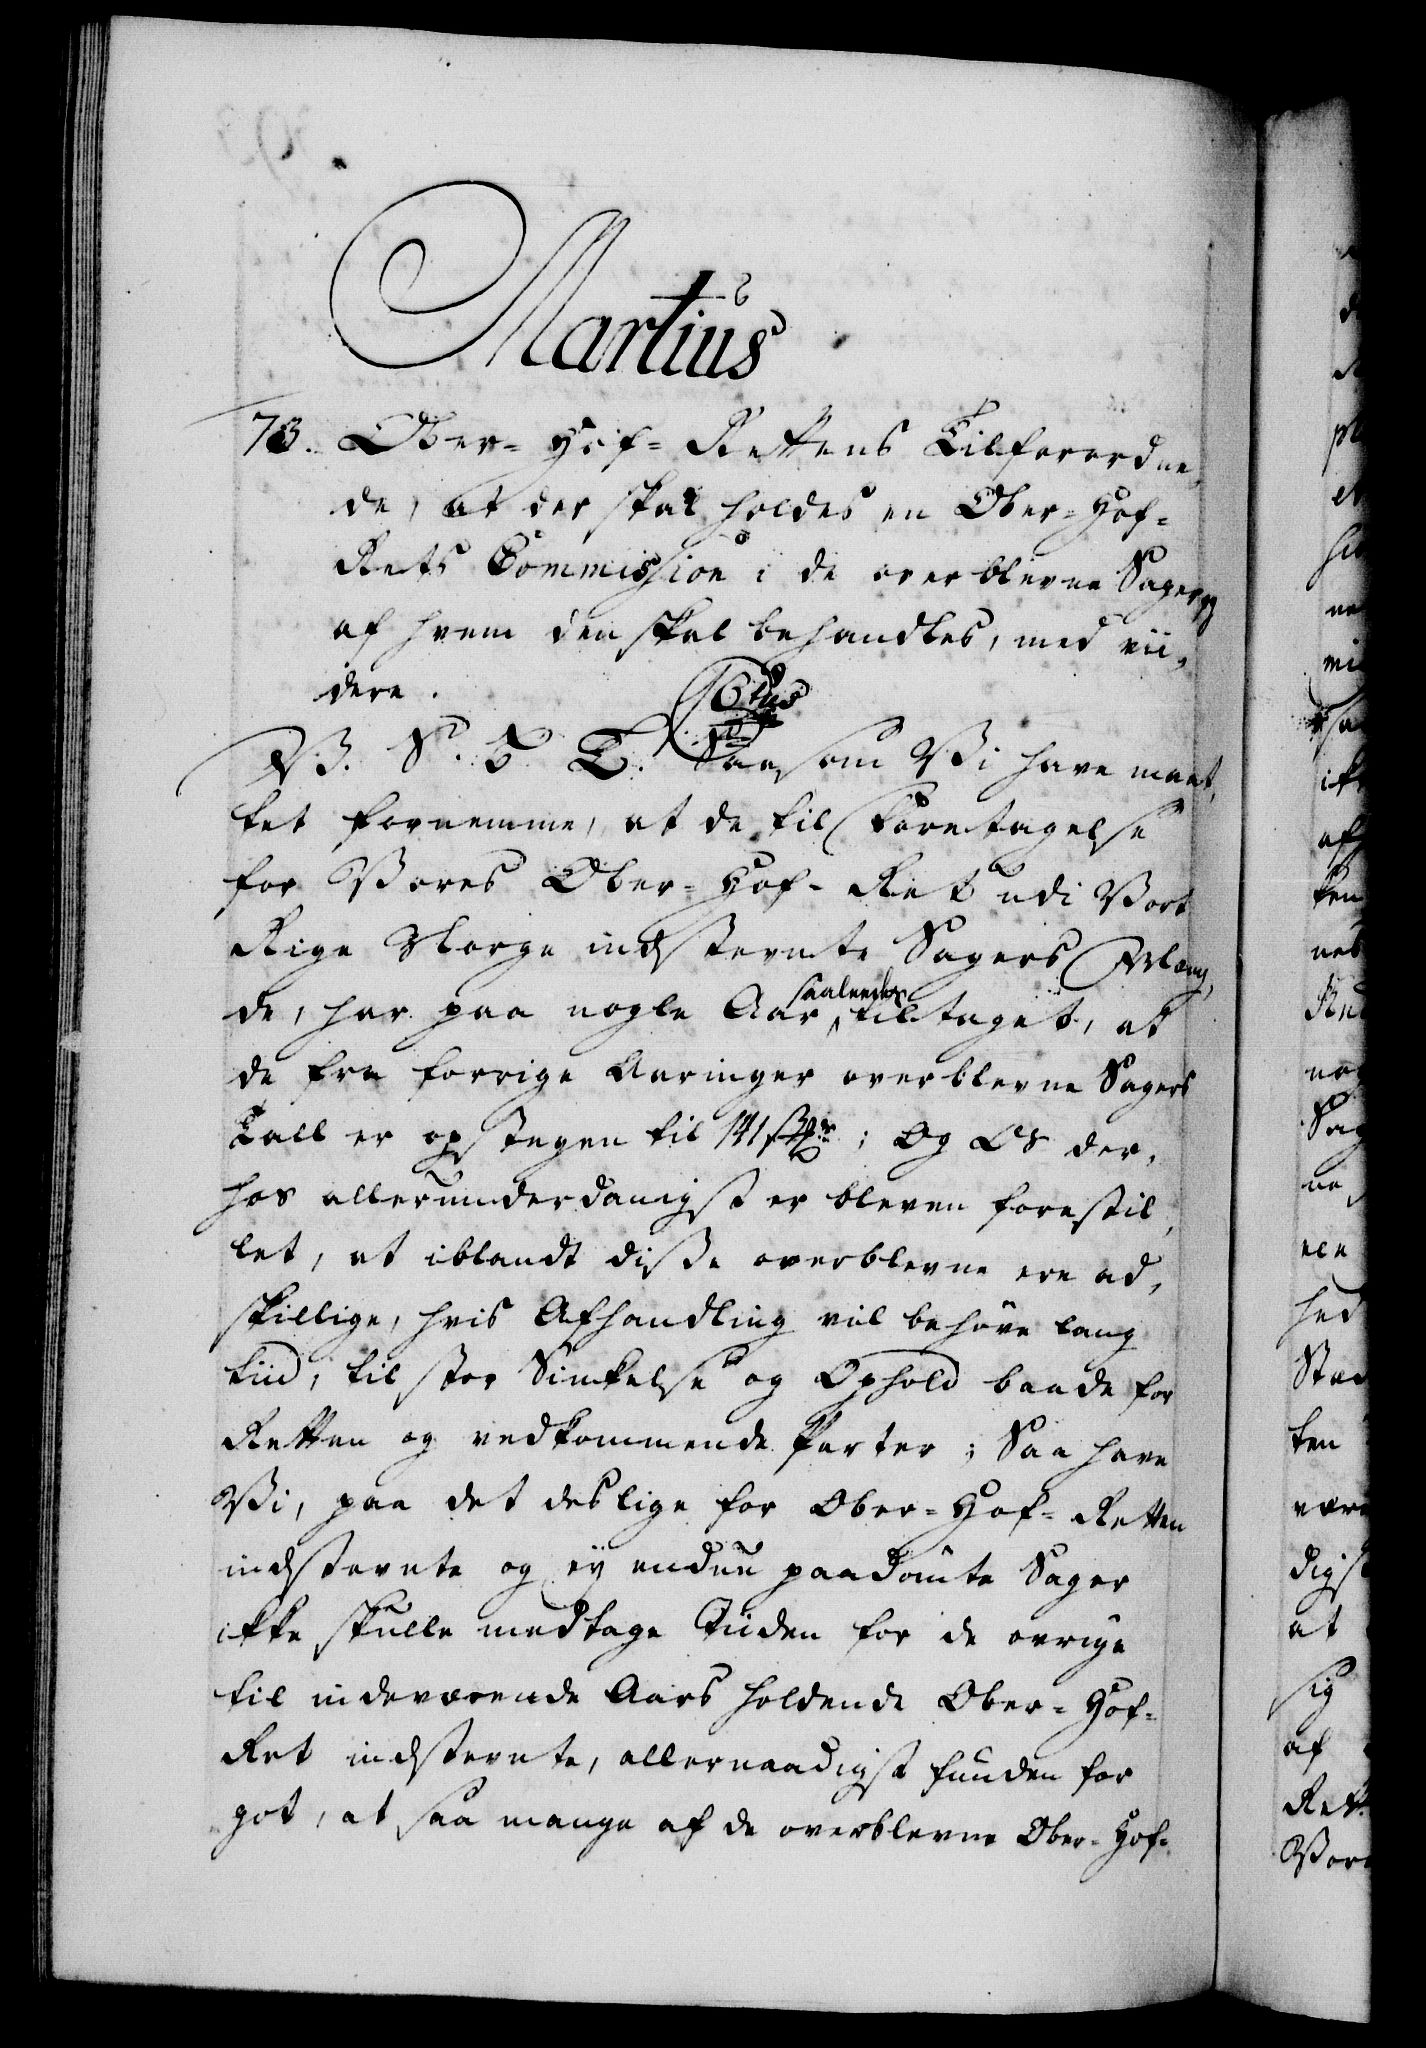 Martius
73. Ober-Hof-Rettens Tilforordne,
de, at der skal holdes en Ober-Hof-
Rets Commission i de overblevne Sager og
af hvem den skal behandles, med vii,
dere.
V. G. T. Saasom Vi have maat,
tet fornemme, at de til Foretagelse
for Vores Ober-Hof-Ret udi Vort
Rige Norge indstevnte Sagers Mæng,
de, har paa nogle Aar saaledes tiltaget, at
de fra forrige Aaringer overblevne Sagers
Tall er opstegen til 141; Og Os der,
hos allerunderdanigst er bleven forestil,
let, at iblandt disse overblevne ere ad,
skillige, hvis Afhandling vil behöve lang
tiid, til stor Sinkelse og Ophold baade for
Retten og vedkommende Parter; Saa have
Vi, paa det deslige for Ober-Hof-Retten
indstevnte og ey endnu paadömte Sager
ikke skulle medtage Tiiden for de övrige
til indeværende Aars holdende Ober-Hof-
Ret indstevnte, allernaadigst funden for
got, at saa mange af de overblevne Ober-Hof-